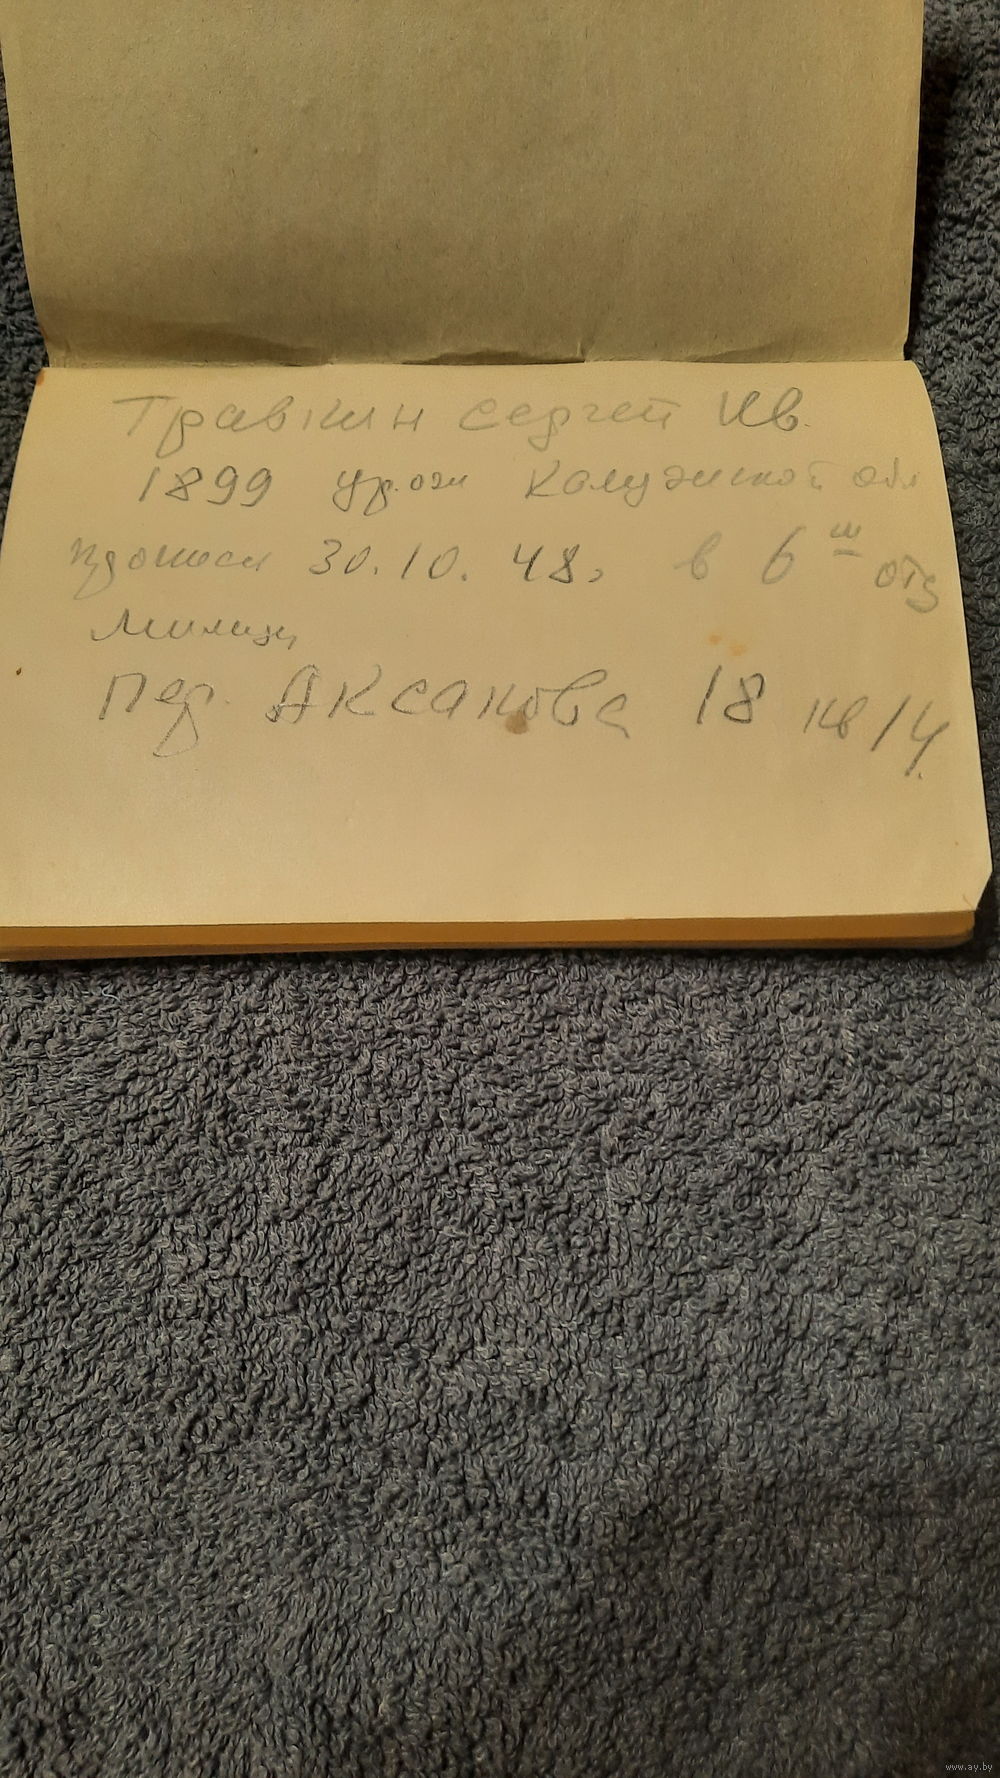 Травкин Сергей Ив.
1899 ур. Калужской обл
30.10.48, в 6 ш отд
Милиц
пер. Аксакова 18 кв 14
www.ay.by